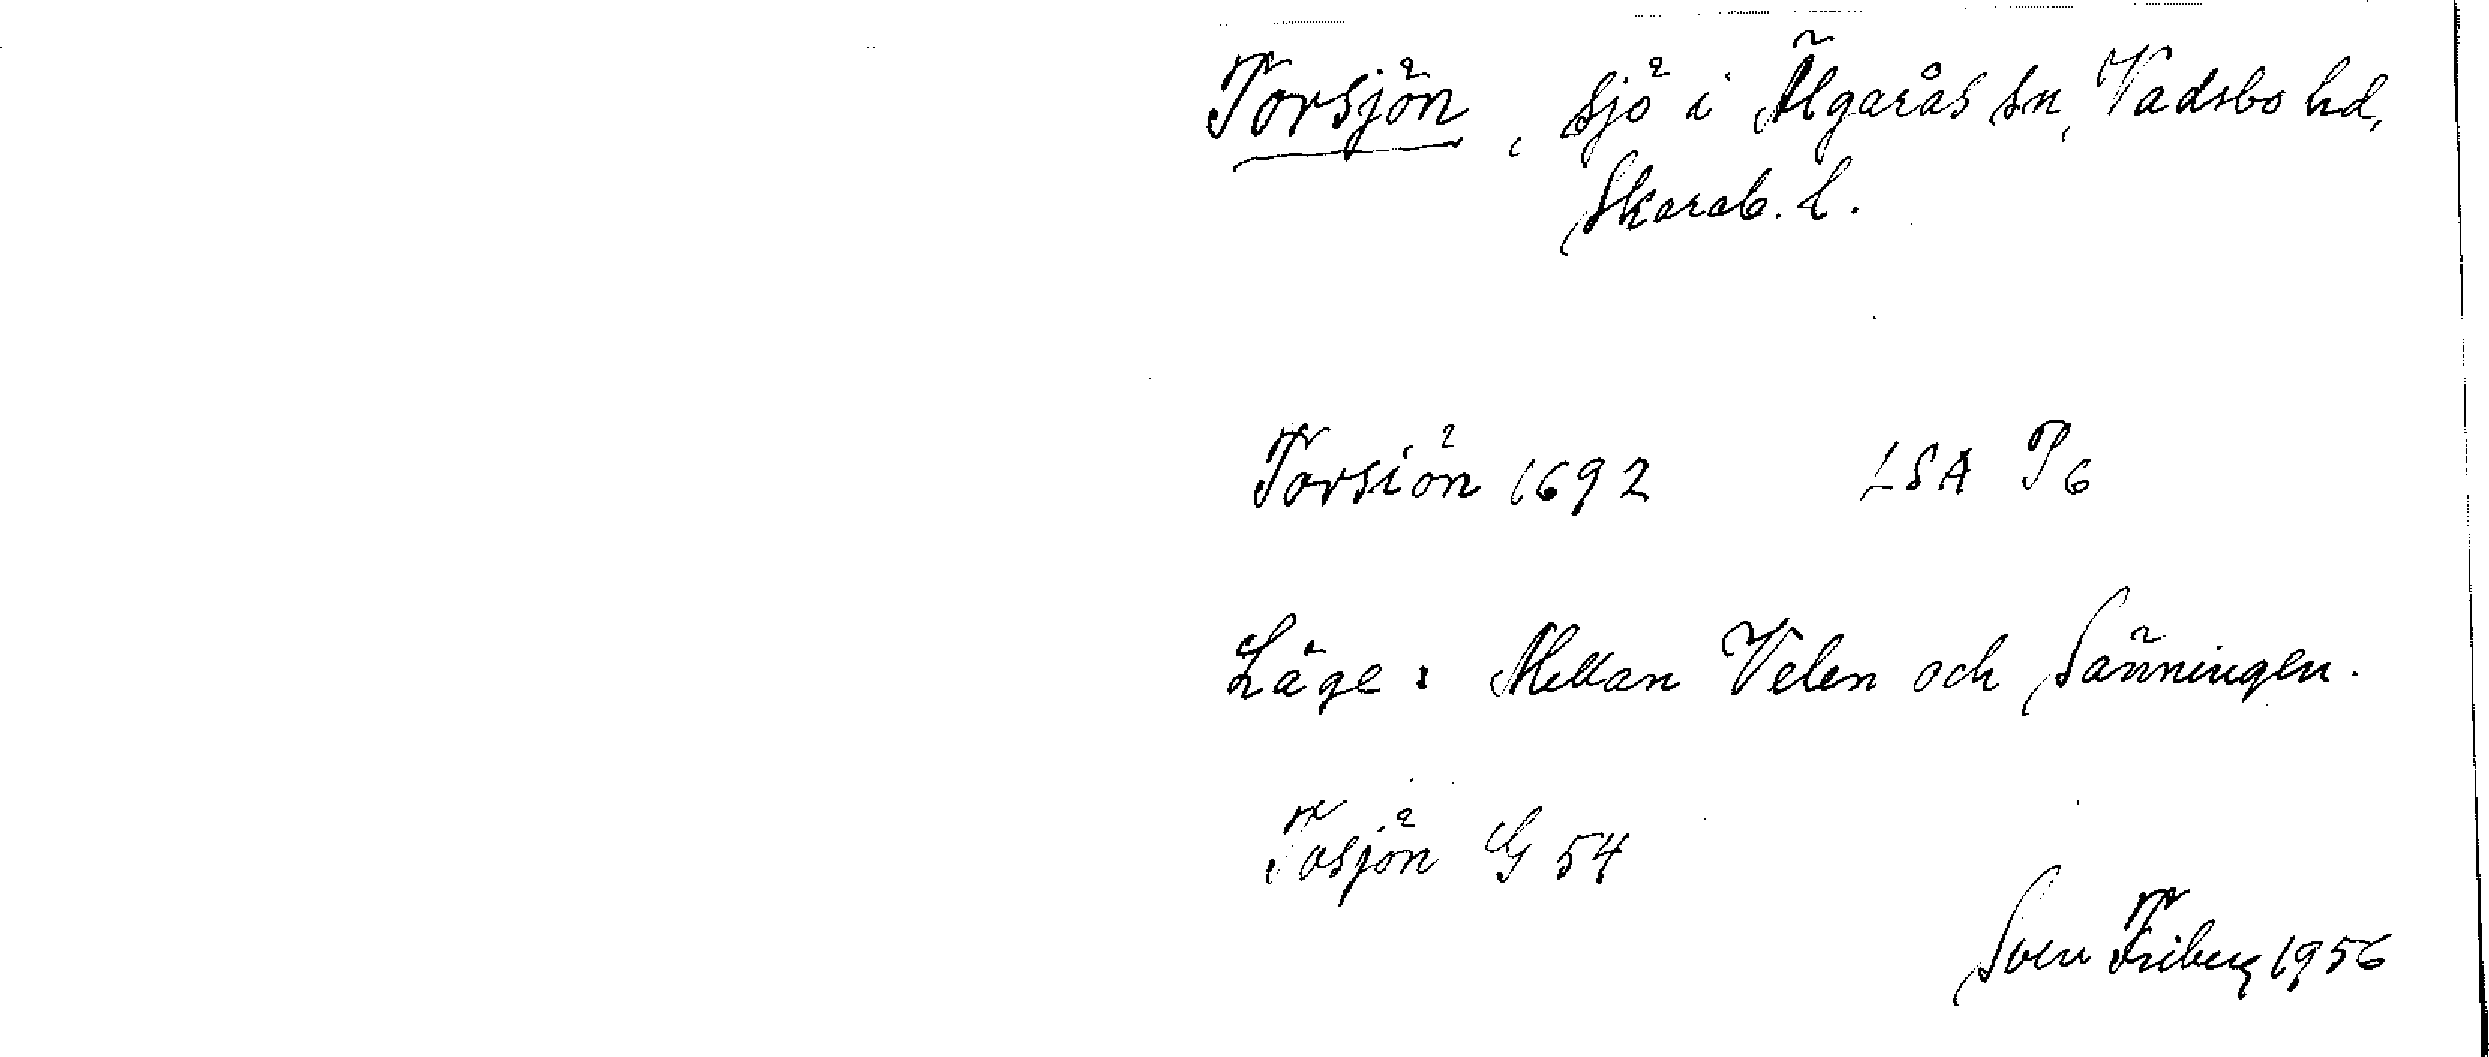 Torsjön, sjö i Älgarås sn, Vadsbo hd,
Skarab. l.
Torsiön 1692 LSA P6
Läge: Mellan Velen och Sänningen.
Tosjön G 54
Sven Friberg 1956